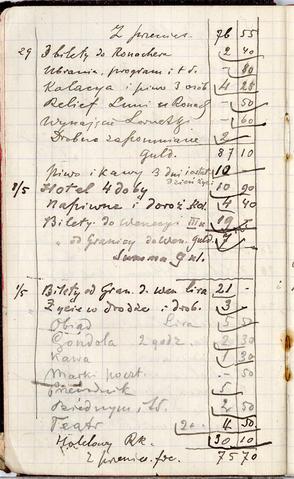 Z przenies. 76 55
29 3 bilety do Ronachera 2 40
Ubrania, program i t d. - 80
Kolacya i piwo 3 osób 4 28
Relief Luni w Ronach - 50
Wynajęcie Lornetki - 60
Drobne zapomniane 2
Guld. 87 10
Piwo i kawy 3 dni
2/5 Hotel 4 doby 10 90
Napiwne i doroż. 4 40
Bilety do Wenecyi III 19
" od Granicy do Wen. guld. 7
Summa Gul.
1/5 Bilety od Gran. d. Wen Lira 21 -
Życie w drodze i drob. 3
Obiad Lira 5 50
Gondola 2 godz. 2 30
Kawa 1 30
Marki poczt. - 50
Przewodnik 5
Biednym, 2 50
Teatr 4 50
Hotelowy Rk. 30 10
Z przenies. frc. 75 70